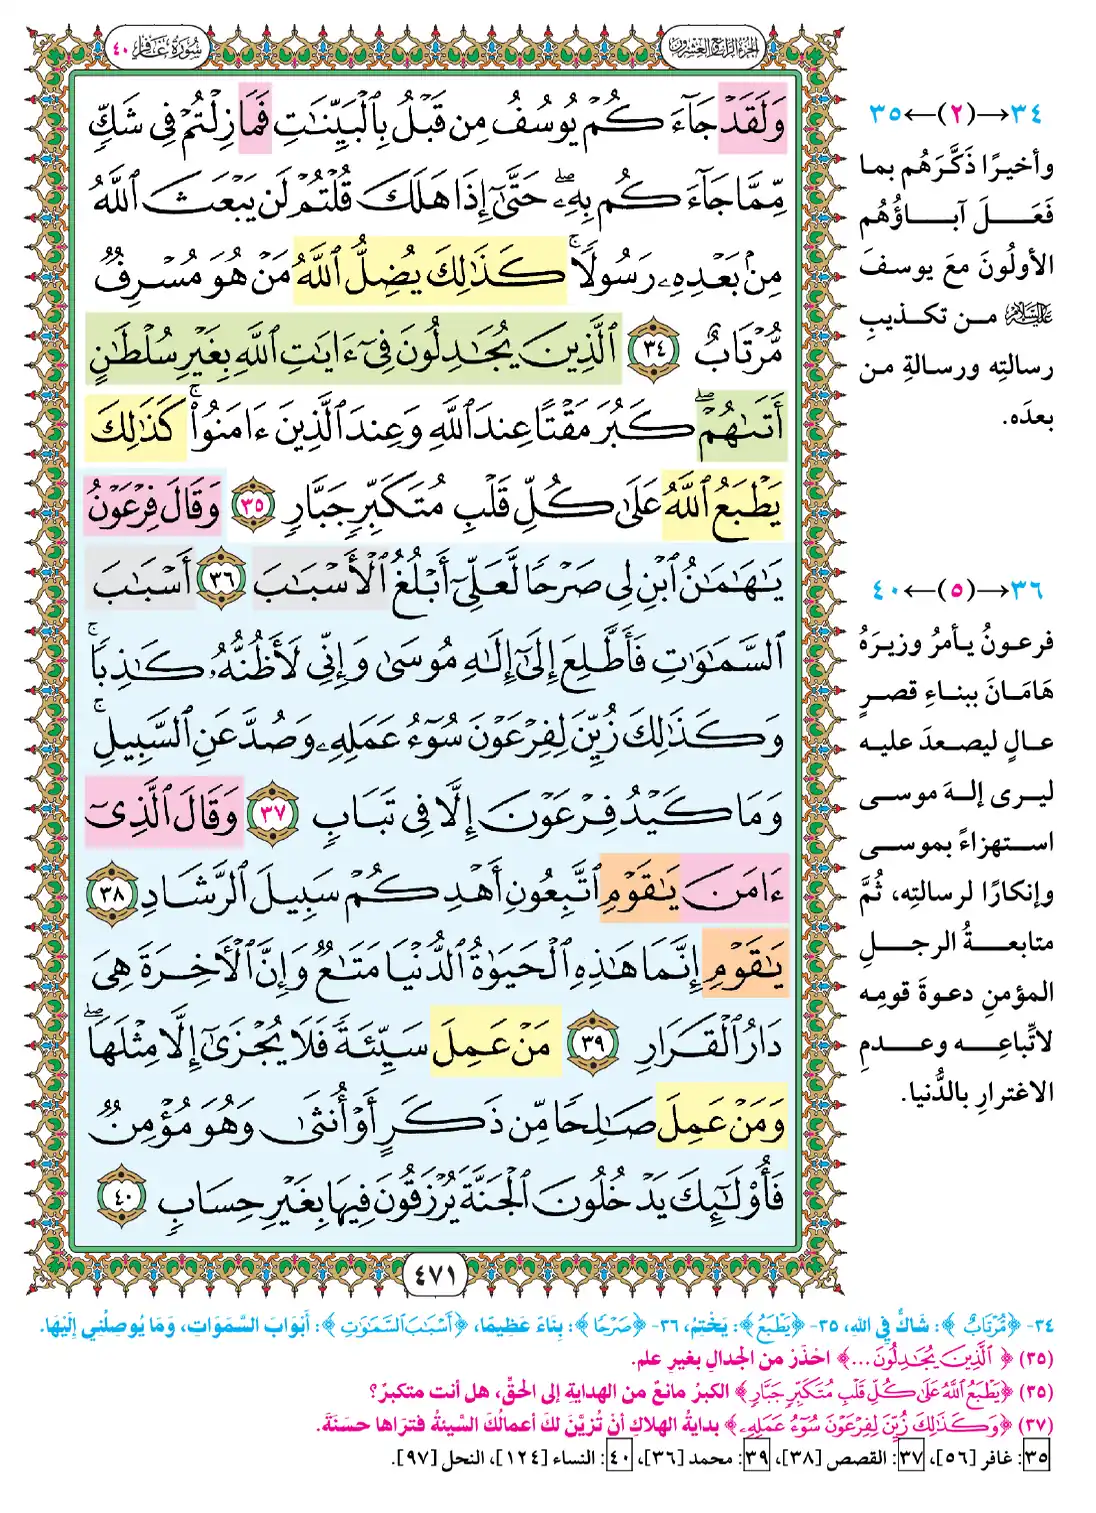 الجزء الرابع والعشرون
سورة غافر ٤٠
وَلَقَدْ جَآءَكُمْ يُوسُفُ مِن قَبْلُ بِٱلْبَيِّنَٰتِ فَمَا زِلْتُمْ فِى شَكٍّ
مِّمَّا جَآءَكُم بِهِۦ ۖ حَتَّىٰٓ إِذَا هَلَكَ قُلْتُمْ لَن يَبْعَثَ ٱللَّهُ
مِنۢ بَعْدِهِۦ رَسُولًا ۚ كَذَٰلِكَ يُضِلُّ ٱللَّهُ مَنْ هُوَ مُسْرِفٌ
مُّرْتَابٌ ٣٤ ٱلَّذِينَ يُجَٰدِلُونَ فِىٓ ءَايَٰتِ ٱللَّهِ بِغَيْرِ سُلْطَٰنٍ
أَتَىٰهُمْ ۖ كَبُرَ مَقْتًا عِندَ ٱللَّهِ وَعِندَ ٱلَّذِينَ ءَامَنُوا۟ ۚ كَذَٰلِكَ
يَطْبَعُ ٱللَّهُ عَلَىٰ كُلِّ قَلْبِ مُتَكَبِّرٍ جَبَّارٍ ٣٥ وَقَالَ فِرْعَوْنُ
يَٰهَٰمَٰنُ ٱبْنِ لِى صَرْحًا لَّعَلِّىٓ أَبْلُغُ ٱلْأَسْبَٰبَ ٣٦ أَسْبَٰبَ
ٱلسَّمَٰوَٰتِ فَأَطَّلِعَ إِلَىٰٓ إِلَٰهِ مُوسَىٰ وَإِنِّى لَأَظُنُّهُۥ كَٰذِبًا ۚ
وَكَذَٰلِكَ زُيِّنَ لِفِرْعَوْنَ سُوٓءُ عَمَلِهِۦ وَصُدَّ عَنِ ٱلسَّبِيلِ ۚ
وَمَا كَيْدُ فِرْعَوْنَ إِلَّا فِى تَبَابٍ ٣٧ وَقَالَ ٱلَّذِىٓ
ءَامَنَ يَٰقَوْمِ ٱتَّبِعُونِ أَهْدِكُمْ سَبِيلَ ٱلرَّشَادِ ٣٨
يَٰقَوْمِ إِنَّمَا هَٰذِهِ ٱلْحَيَوٰةُ ٱلدُّنْيَا مَتَٰعٌ وَإِنَّ ٱلْءَاخِرَةَ هِىَ
دَارُ ٱلْقَرَارِ ٣٩ مَنْ عَمِلَ سَيِّئَةً فَلَا يُجْزَىٰٓ إِلَّا مِثْلَهَا ۖ
وَمَنْ عَمِلَ صَٰلِحًا مِّن ذَكَرٍ أَوْ أُنثَىٰ وَهُوَ مُؤْمِنٌ
فَأُو۟لَٰٓئِكَ يَدْخُلُونَ ٱلْجَنَّةَ يُرْزَقُونَ فِيهَا بِغَيْرِ حِسَابٍ ٤٠
٤٧١
٣٤→(٢)←٣٥
وأخيرًا ذَكَّرَهُم بما
فَعَلَ آباؤُهُم
الأولُونَ معَ يوسفَ
عليه السلام من تكذيبِ
رسالتِه ورسالةِ من
بعدَه.
٣٦→(٥)←٤٠
فرعونُ يأمرُ وزيرَهُ
هَامَانَ ببناءِ قصرٍ
عالٍ ليصعدَ عليه
ليرى إلهَ موسى
استهزاءً بموسى
وإنكارًا لرسالتِه، ثُمَّ
متابعةُ الرجلِ
المؤمنِ دعوةَ قومِه
لاتِّباعِه وعدمِ
الاغترارِ بالدُّنيا.
٣٤- ﴿مُّرْتَابٌ﴾: شَاكٌّ فِي اللهِ، ٣٥- ﴿يَطْبَعُ﴾: يَخْتِمُ، ٣٦- ﴿صَرْحًا﴾: بِنَاءً عَظِيمًا، ﴿أَسْبَٰبَ ٱلسَّمَٰوَٰتِ﴾: أَبْوَابَ السَّمَوَاتِ، وَمَا يُوصِلُنِي إِلَيْهَا.
(٣٥) ﴿ٱلَّذِينَ يُجَٰدِلُونَ...﴾ احْذَرْ من الجدال بغيرِ علم.
(٣٥) ﴿يَطْبَعُ ٱللَّهُ عَلَىٰ كُلِّ قَلْبِ مُتَكَبِّرٍ جَبَّارٍ﴾ الكبرُ مانعٌ من الهدايةِ إلى الحقِّ، هل أنت متكبرٌ؟
(٣٧) ﴿وَكَذَٰلِكَ زُيِّنَ لِفِرْعَوْنَ سُوٓءُ عَمَلِهِۦ﴾ بدايةُ الهلاكِ أنْ تُزيَّنَ لكَ أعمالُكَ السَّيئةُ فترَاها حسَنَةً.
٣٥: غافر [٥٦]، ٣٧: القصص [٣٨]، ٣٩: محمد [٣٦]، ٤٠: النساء [١٢٤]، النحل [٩٧].